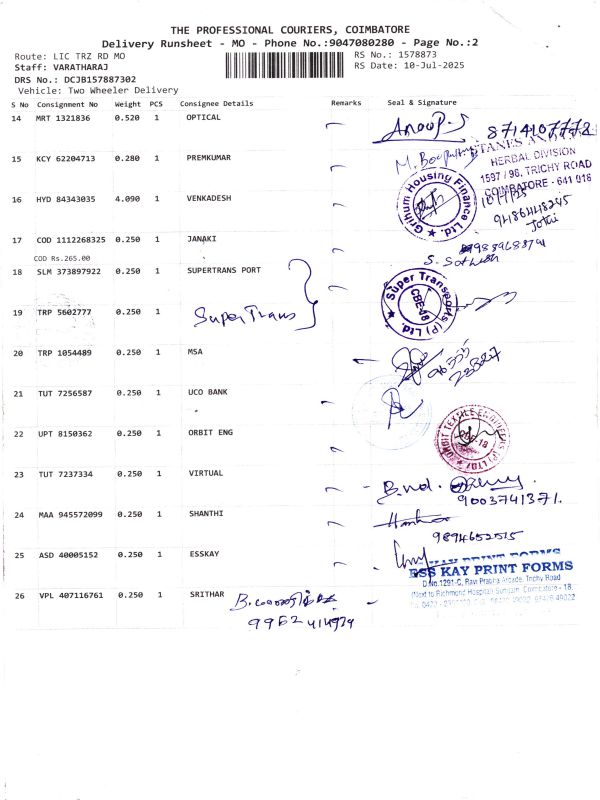 THE PROFESSIONAL COURIERS, COIMBATORE
Delivery Runsheet - MO - Phone No.:9047080280 - Page No.:2
Route: LIC TRZ RD MO
RS No.: 1578873
Staff: VARATHARAJ
RS Date: 10-Jul-2025
DRS No.: DCJB157887302
Vehicle: Two Wheeler Delivery
S No Consignment No Weight PCS Consignee Details Remarks Seal & Signature
14 MRT 1321836 0.520 1 OPTICAL Anoop.S 8714107772
15 KCY 62204713 0.280 1 PREMKUMAR
HERBAL DIVISION
1597 / 96, TRICHY ROAD
COIMBATORE - 641 018
16 HYD 84343035 4.090 1 VENKADESH
Grihum Housing Finance Ltd.
17 COD 1112268325 0.250 1 JANAKI
COD Rs.265.00
S. Sathish
18 SLM 373897922 0.250 1 SUPERTRANS PORT
Super Transports (P) Ltd.
CBE-18
19 TRP 5602777 0.250 1 SuperTrans
20 TRP 1054489 0.250 1 MSA
21 TUT 7256587 0.250 1 UCO BANK
22 UPT 8150362 0.250 1 ORBIT ENG
23 TUT 7237334 0.250 1 VIRTUAL
9003741371.
24 MAA 945572099 0.250 1 SHANTHI
9894652515
25 ASD 40005152 0.250 1 ESSKAY
ESS KAY PRINT FORMS
D.No.1291-C, Ravi Prabha Arcade, Trichy Road
(Next to Richmond Hospital) Sungam, Coimbatore - 18.
26 VPL 407116761 0.250 1 SRITHAR
9952414934